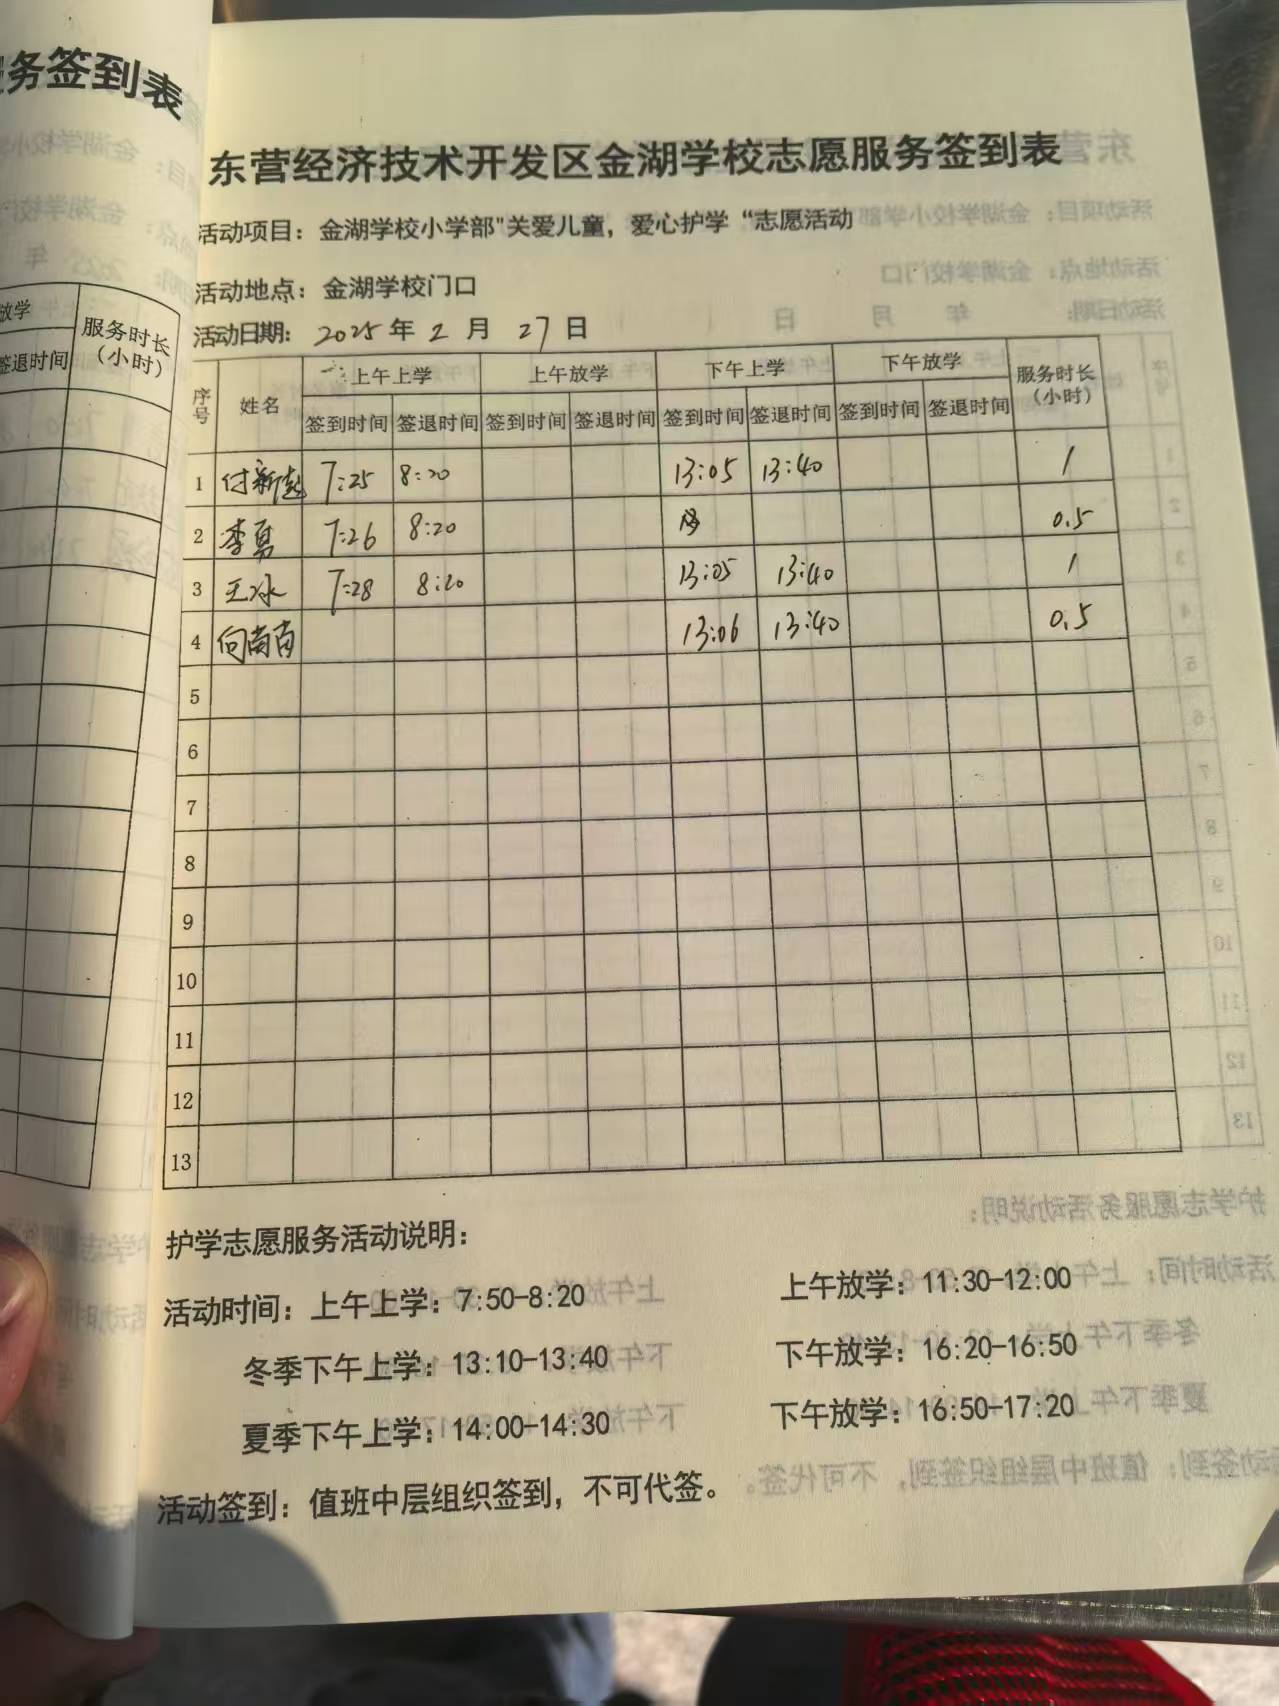 务签到表
放学
签退时间
服务时长
（小时）
东营经济技术开发区金湖学校志愿服务签到表
活动项目：金湖学校小学部"关爱儿童，爱心护学 “志愿活动
活动地点：金湖学校门口
活动日期： 2025 年 2 月 27 日
序号 姓名 上午上学 上午放学 下午上学 下午放学 服务时长（小时）
签到时间 签退时间 签到时间 签退时间 签到时间 签退时间 签到时间 签退时间
1 付新 7:25 8:20 13:05 13:40 1
2 李勇 7:26 8:20 0.5
3 王冰 7:28 8:20 13:05 13:40 1
4 向南南 13:06 13:40 0.5
5
6
7
8
9
10
11
12
13
护学志愿服务活动说明：
活动时间：上午上学：7:50-8:20 上午放学：11:30-12:00
冬季下午上学：13:10-13:40 下午放学：16:20-16:50
夏季下午上学：14:00-14:30 下午放学：16:50-17:20
活动签到：值班中层组织签到，不可代签。